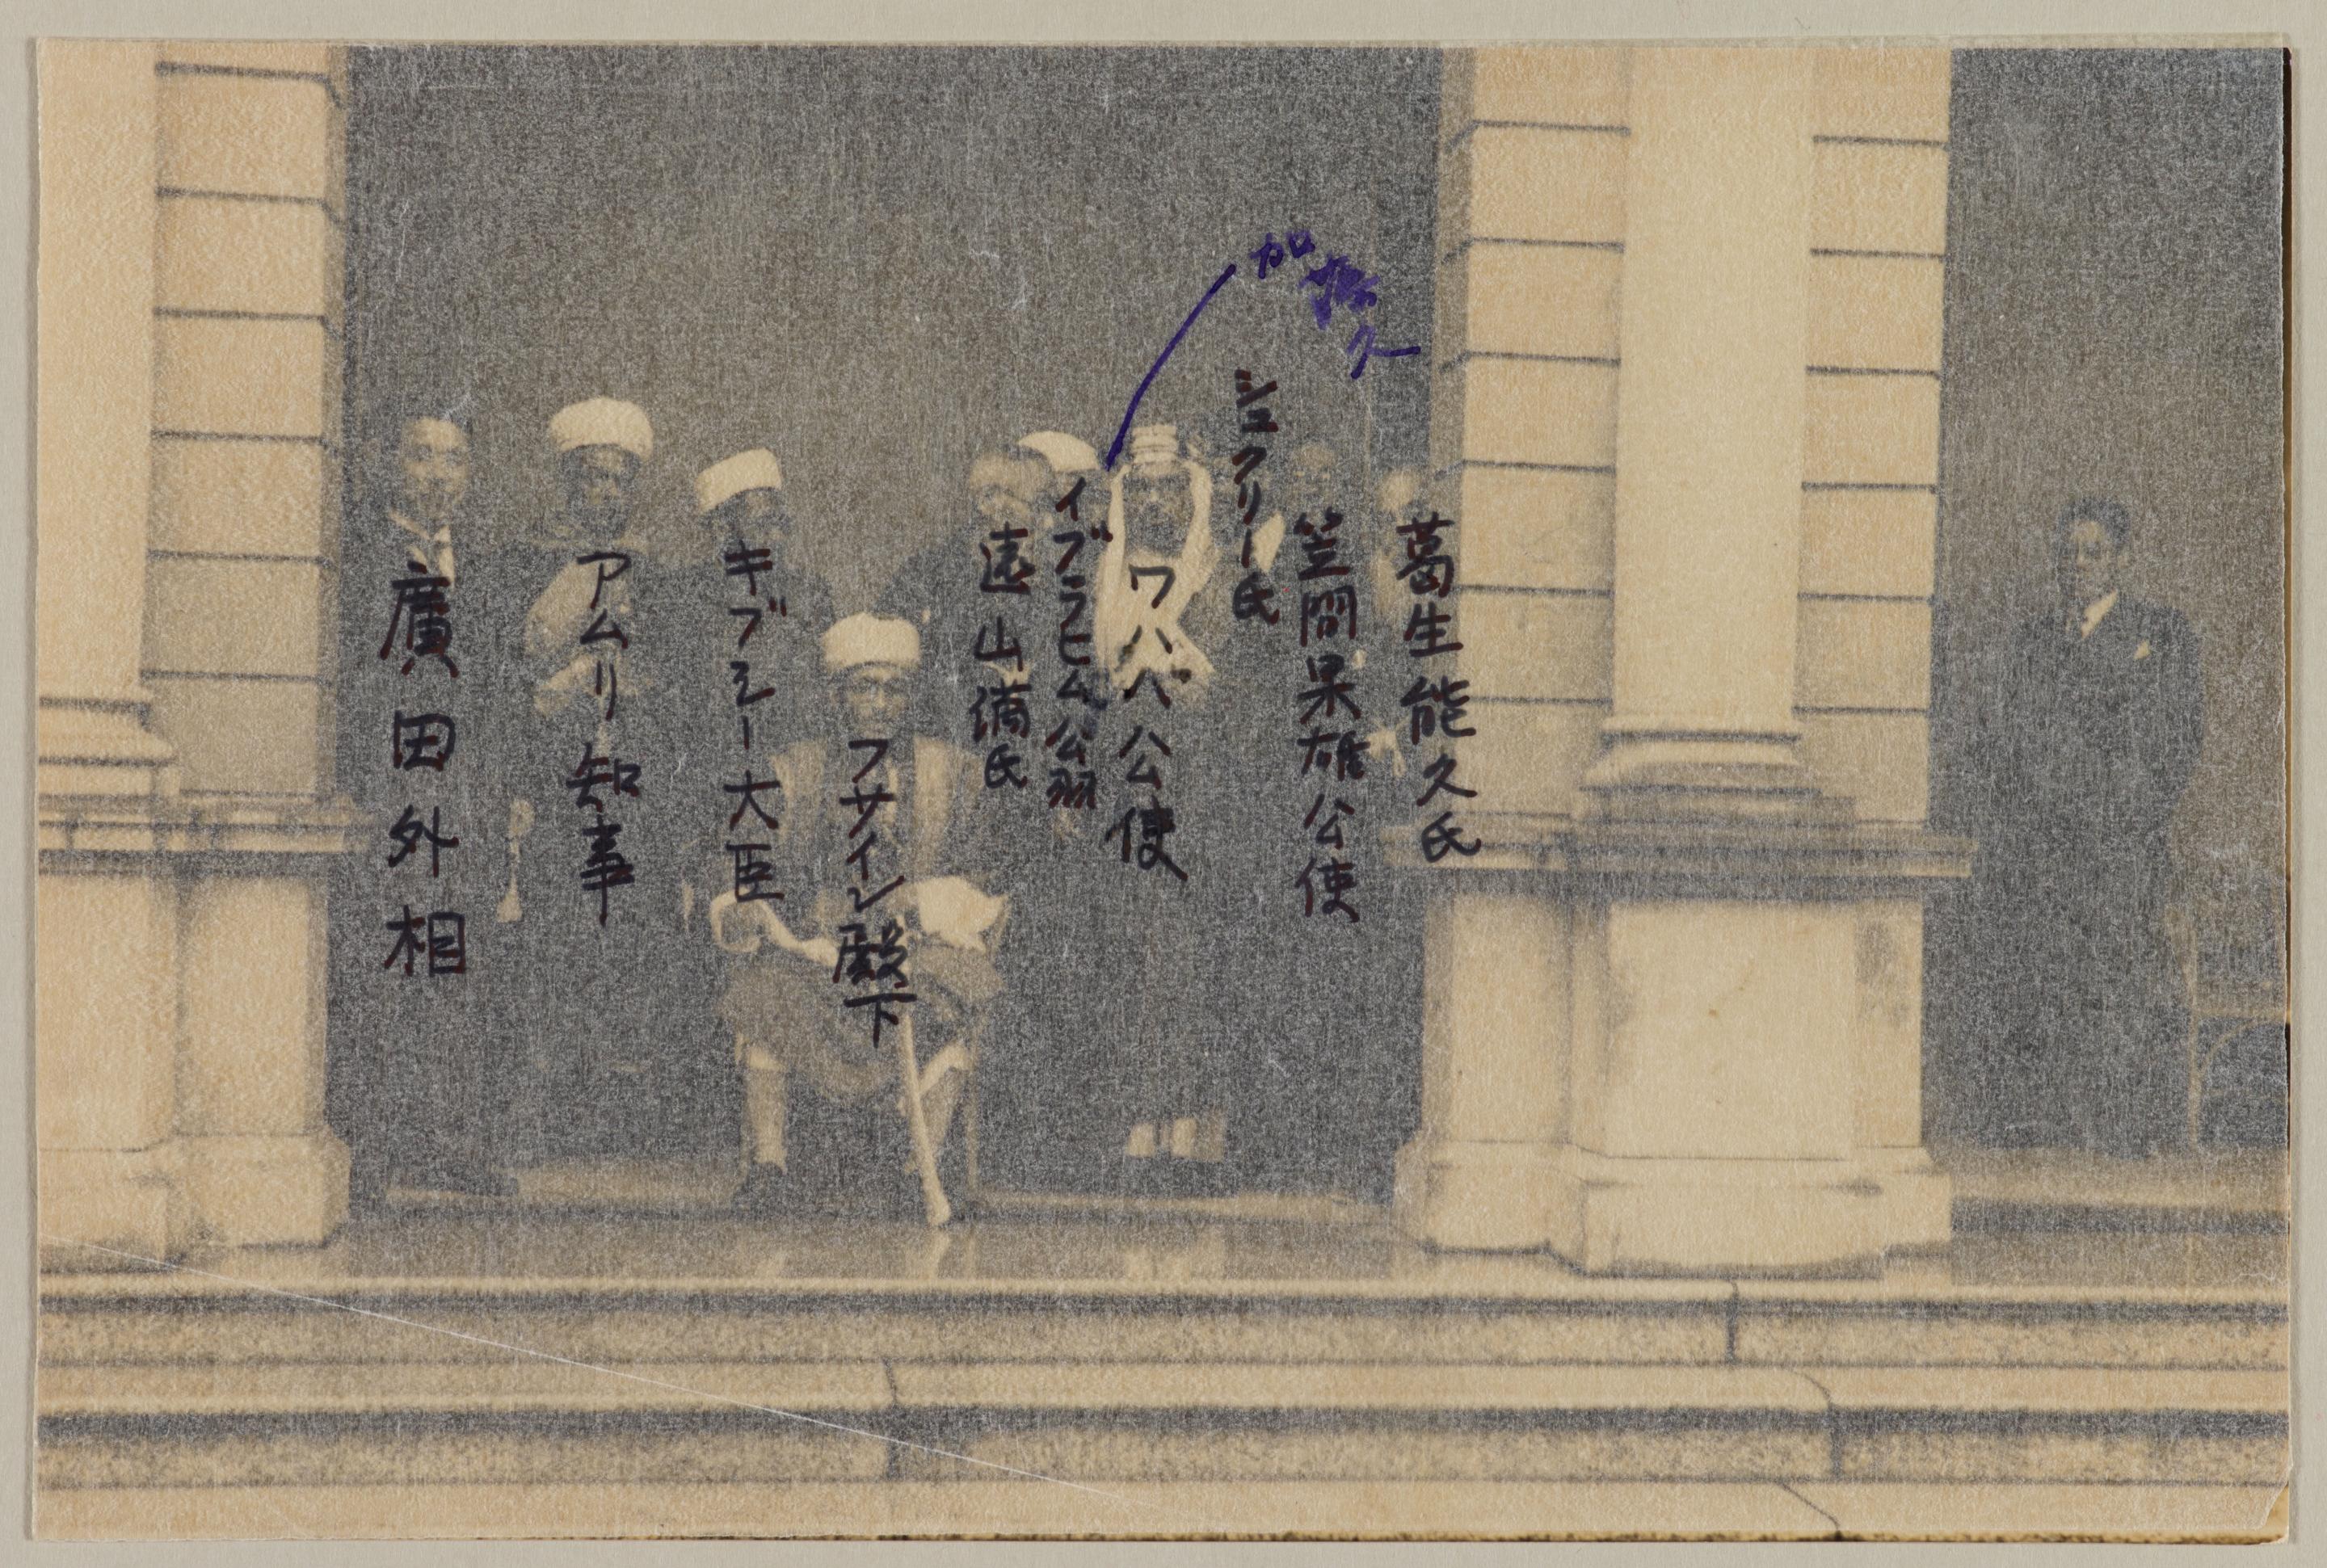 葛生能久氏
笠間杲雄公使
シュクリー氏
加藤久
ワハバ公使
イブラヒム翁
遠山満氏
フサイン殿下
キブシー大臣
アムリ知事
廣田外相